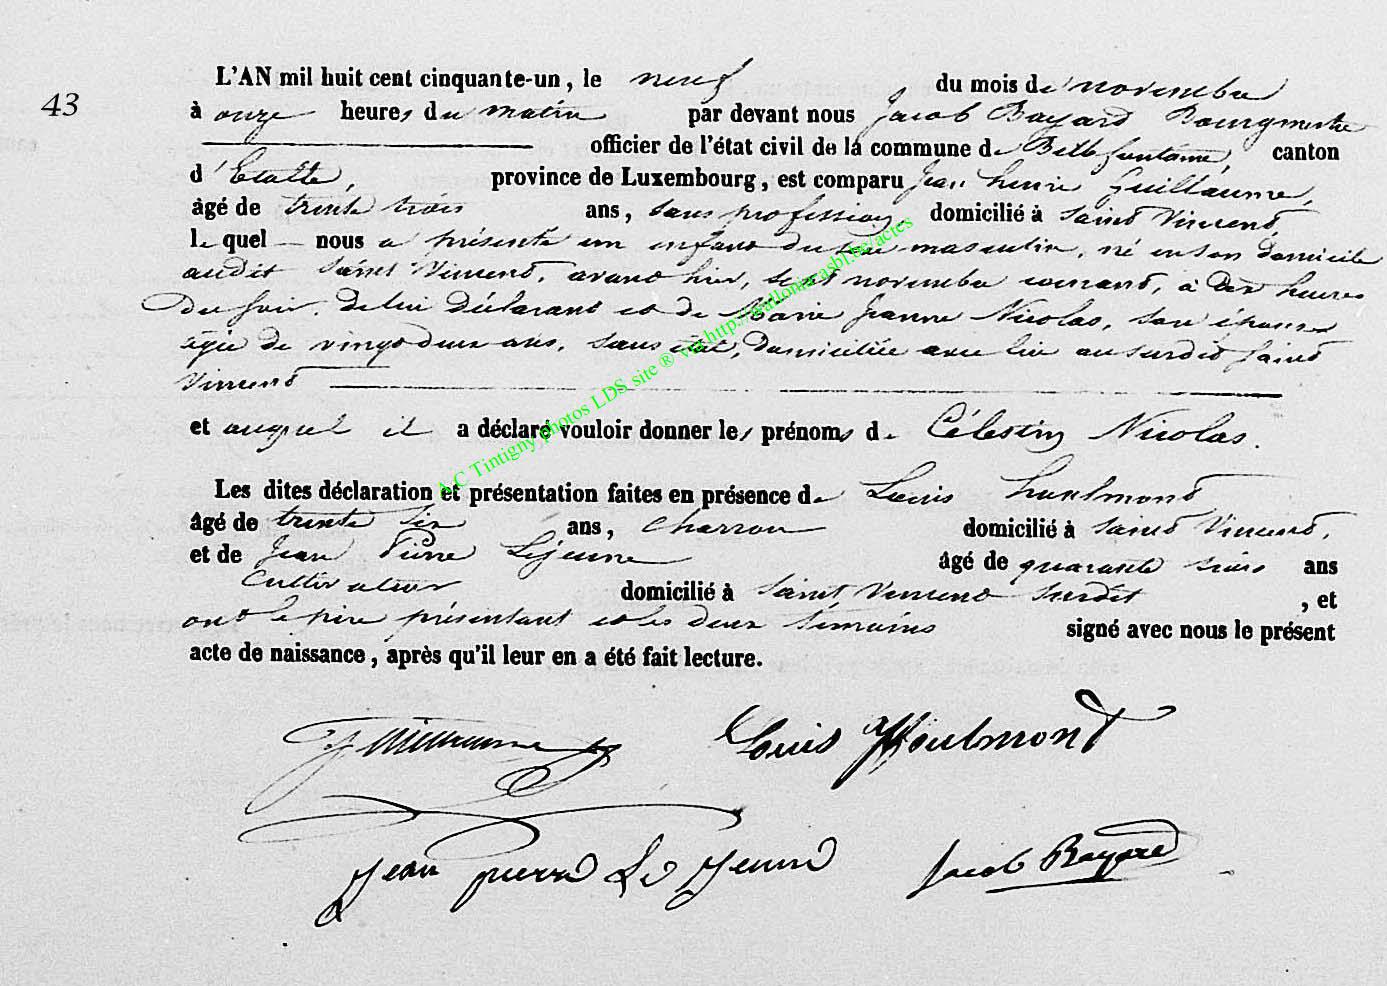 43
L'AN mil huit cent cinquante-un, le neuf du mois de novembre
à onze heures du matin par devant nous Jacob Bayard Bourgmestre
officier de l'état civil de la commune de Bellefontaine, canton
d'Etalle, province de Luxembourg, est comparu Jean henri Guillaume,
âgé de trente trois ans, sans profession, domicilié à Saint Vincent,
le quel nous a présenté un enfant du sexe masculin, né en son domicile
audit Saint Vincent, avant hier, sept novembre courant, à dix heures
du soir, de lui déclarant et de Marie Jeanne Nicolas, son épouse
agée de vingt deux ans, sans état, domiciliée avec lui au susdit Saint
Vincent
et auquel il a déclaré vouloir donner les prénoms de Célestin Nicolas.
Les dites déclaration et présentation faites en présence de Louis houlmont
âgé de trente six ans, charron domicilié à Saint Vincent,
et de Jean Pierre Lejeune âgé de quarante trois ans
cultivateur domicilié à Saint Vincent susdit, et
ont le père présentant et les deux témoins signé avec nous le présent
acte de naissance, après qu'il leur en a été fait lecture.
Louis Houlmont
Jean pierre Le Jeune Jacob Bayard
A.C Tintigny photos LDS site ® via http://wallonica.asbl.be/actes